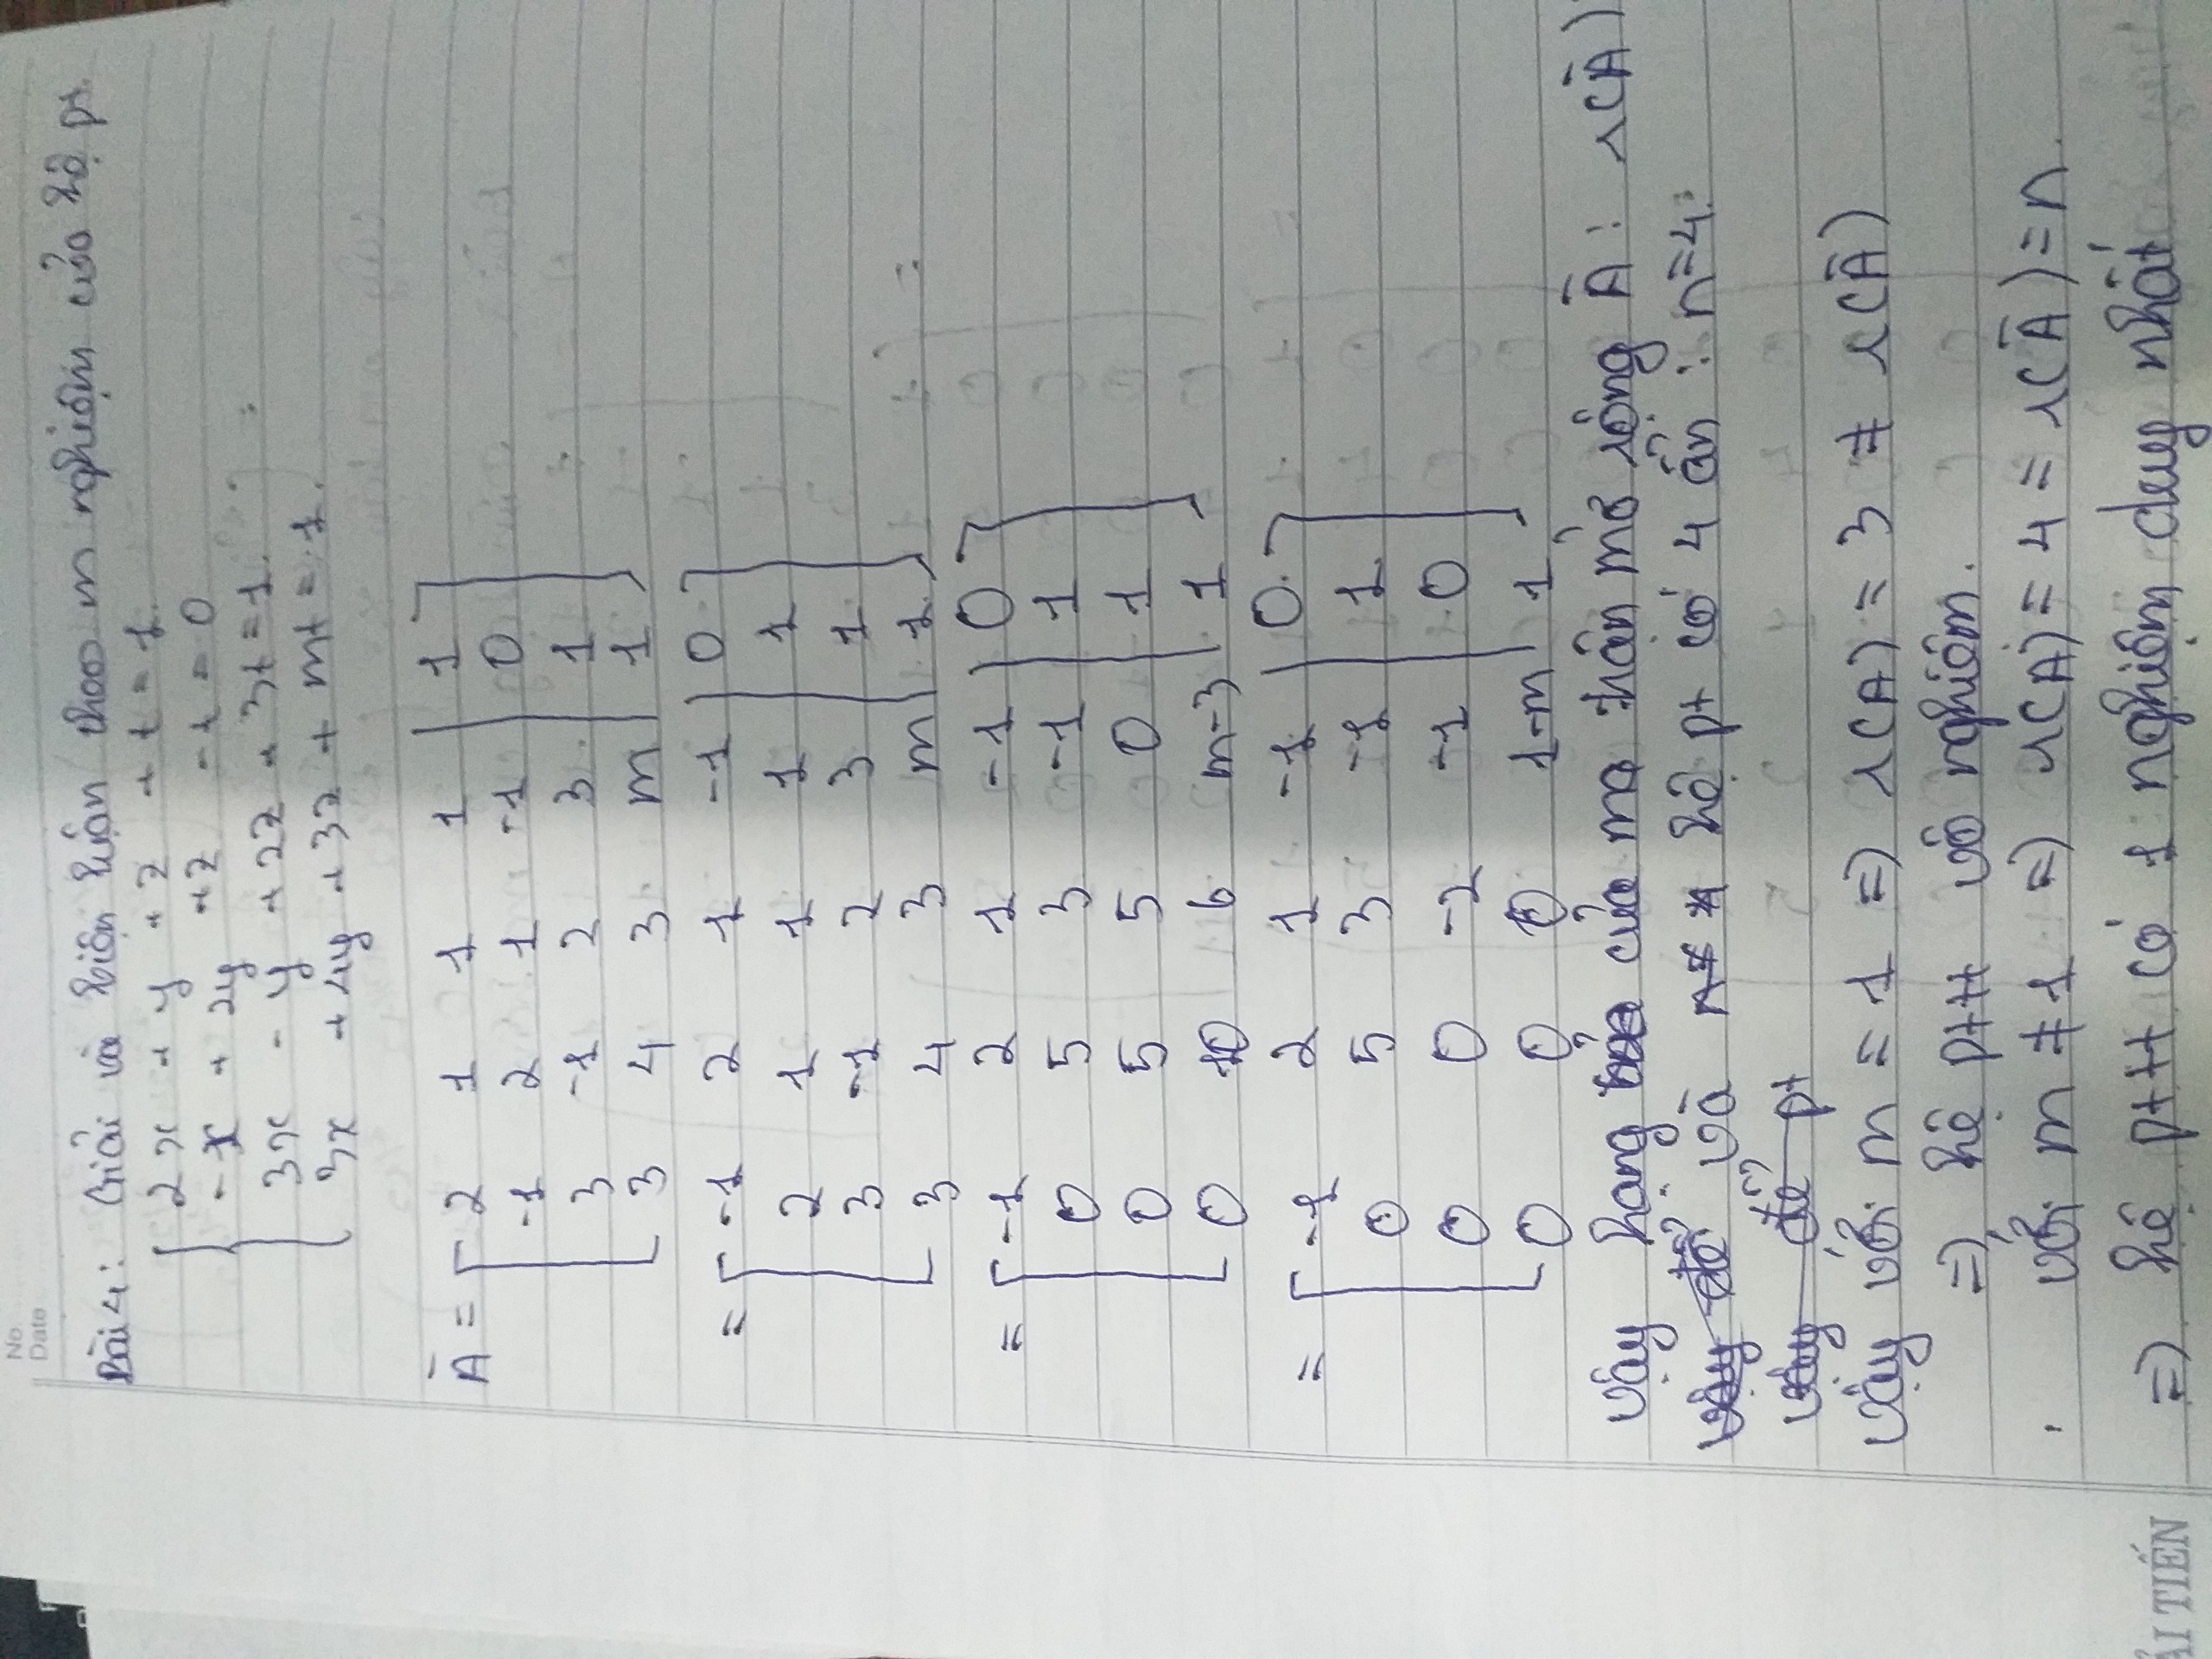 No.
Date
Bài 4: Giải và biện luận theo m nghiệm của hệ pt.
2x + y + z + t = 1.
-x + 2y + z - t = 0
3x - y + 2z + 3t = 1.
3x + 4y + 3z + mt = 1.
Ā = [ 2 1 1 1 | 1 ]
-1 2 1 -1 | 0
3 -1 2 3 | 1
3 4 3 m | 1
= [ -1 2 1 -1 | 0 ]
2 1 1 1 | 1
3 -1 2 3 | 1
3 4 3 m | 1
= [ -1 2 1 -1 | 0 ]
0 5 3 -1 | 1
0 5 5 0 | 1
0 10 6 m-3 | 1
= [ -1 2 1 -1 | 0 ]
0 5 3 -1 | 1
0 0 -2 -1 | 0
0 0 0 1-m | 1
Vậy hạng của ma trận mở rộng Ā : r(Ā)
và hệ pt có 4 ẩn : n=4.
Vậy với m = 1 => r(A) = 3 ≠ r(Ā)
=> hệ pttt vô nghiệm.
. với m ≠ 1 => r(A) = 4 = r(Ā) = n.
=> hệ pttt có 1 nghiệm duy nhất
ẢI TIẾN